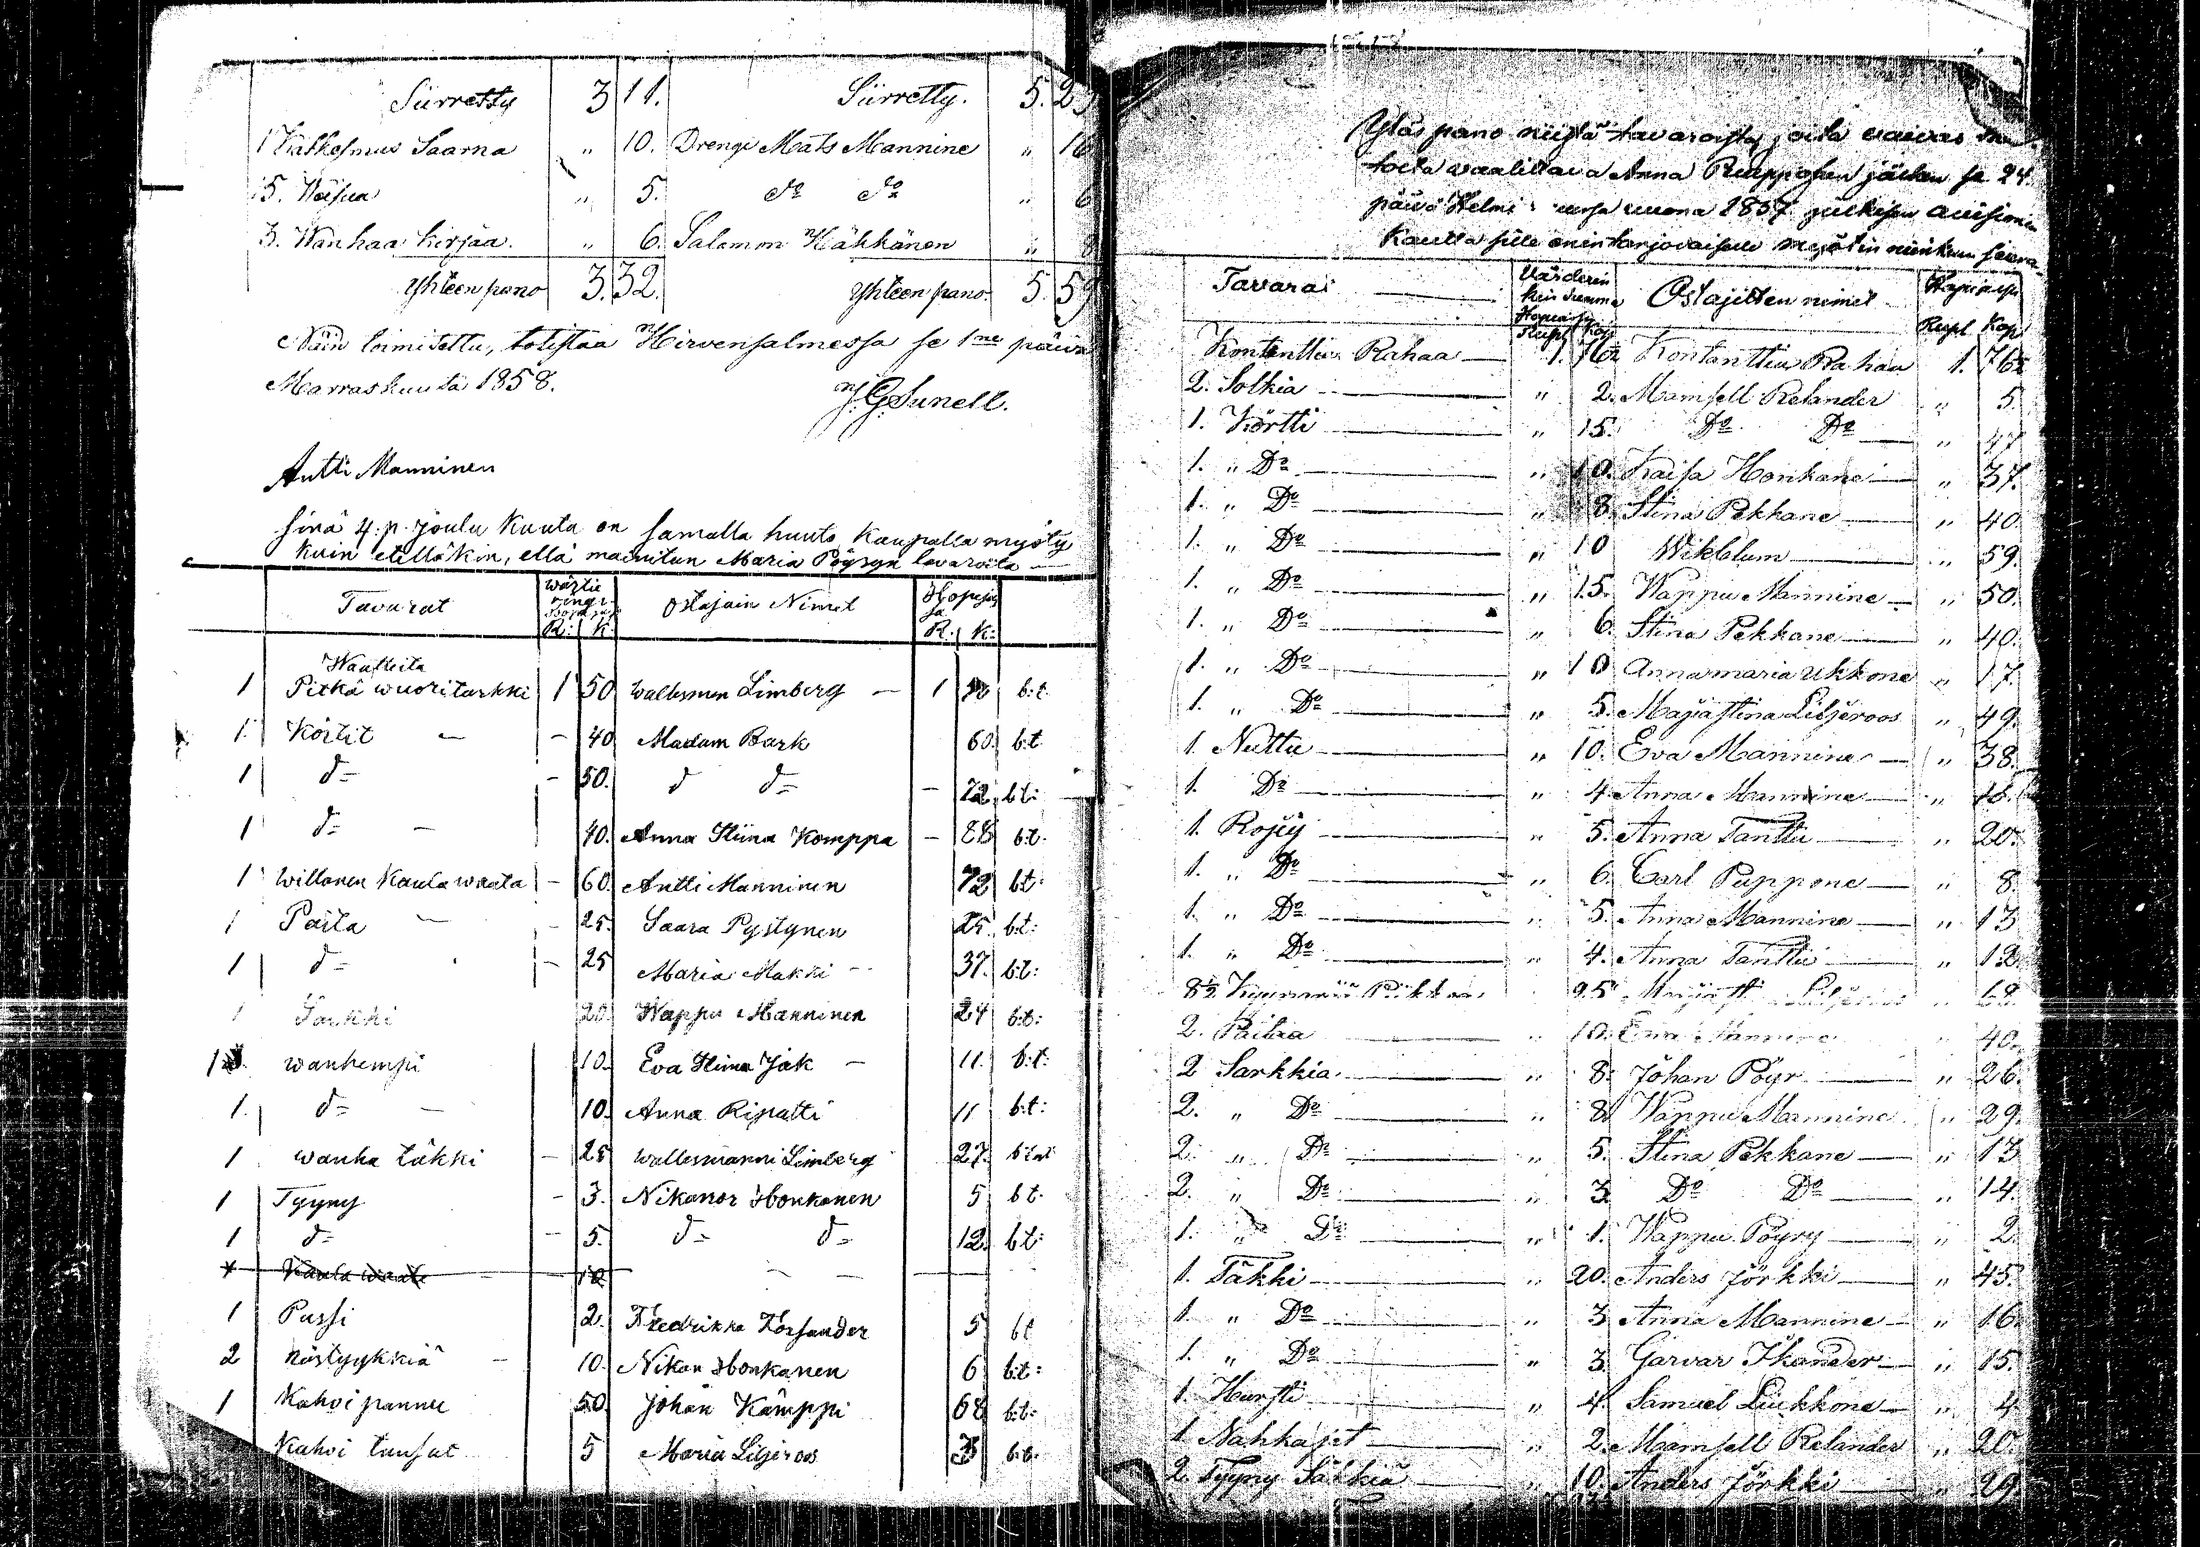 Siirretty 3 11. Siirretty. 5. 25
1 Katkesmus Saarna " 10. Drengi Mats Mannine " 16
5. Weisua " 5. do do " 6
3. Wanhaa kirjaa. " 6. Salamon Häkkänen " 8
Yhteen pano 3. 32. Yhteen pano. 5. 59
Näin toimitettu, totistaa Hirvensalmessa se 1ne päivä
Marraskuuta 1858. J. G. Sunell.
Antti Manninen
Sinä 4. p. joulu kuuta on samalla huuto kaupalla myöty
kuin etelläkin, ellä mainitun Maria Pöyryn tavaroita
Tavarat R: K: Ostajain Nimet Hopeassa R. K:
Waatteita
1 Pitkä wuoritarkki 1 50 wallesman Limberg — 1 b:t.
1. Körtit — 40 Madam Bark 60. b:t
1 d= - 50. d d= - 72. b.t:
1 d= - 40. Anna Stiina Komppa - 88 b:t.
1 Willanen Kaula waate - 60. Antti Manninen 72 b.t:
1 Paita - 25. Saara Pystynen 25. b.t:
1 d= - 25 Maria Makki - 37. b.t:
1 Sarkki 20. Wappu Manninen 24 b:t:
1 wanhempi 10. Eva Stina Jak - 11. b:t.
1. d= - 10. Anna Ripatti 11 b:t:
1 wanha täkki - 25 wallesmanni Limberg 27.
1 Tyyny - 3. Nikanor Honkanen 5 b t.
1 d= - 5. d= d= 12. b t:
Kaula waate 10
1 Pussi 2. Fredrikka Forsander 5 b t
2 Nästyykkiä - 10. Nikan Honkanen 6 b.t:
1 Kahvi pannu 50. Johan Kämppi 68 b:t.
Kahvi tansut 5 Maria Liljeroos b:t.
Ylös pano niistä tavaroista, joita
päivä Helmi kuusa vuona 1857 julkisen auksionin
kautta sille enintarjovaiselle myötiin niinkuin seura-
Tavarai Värderin kein summa Hopeassa Rupl. Kop Ostajitten nimet Hopiassa Rupl Kop
Kontanttia Rahaa — 1. 76½ Kontanttia Rahaa 1. 76½
2. Solkia " 2. Mamsell Relander " 5.
1. Körtti " 15. Do Do " 47
1. " Do " 10. Kaisa Honkane " 37.
1. " Do " 8. Stina Pekkane " 40.
1. " Do " 10 Wikblum " 59.
1. " Do " 15. Wappu Mannine " 50.
1. " Do " 6. Stina Pekkane " 40.
1. " Do " 10 Annamaria Ukkone " 17.
1. " Do " 5. Majastina Liljeroos " 49.
1. Nuttu " 10. Eva Mannine " 38.
1. Do " 4 Anna Mannine "
1. Rojsy " 5. Anna Tanttu " 20.
1. " Do " 6. Carl Puppone " 8.
1. " Do " 5. Anna Mannine " 13
1. " Do " 4. Anna Tanttu " 12.
8½ Kyynärää 25
2. Paitaa " 10. Eva Mannine " 40.
2 Sarkkia " 8. Johan Pöyr " 26.
2. " Do " 8. Wappu Mannine " 29.
2. " Do " 5. Stina Pekkane " 13
2. " Do " 3. Do Do " 14.
1. " Do " 1. Wappu Pöyry " 2.
1. Täkki " 20. Anders Jörkki " 45.
1. " Do " 3 Anna Mannine " 16.
1. " Do " 3. Garvar Ikander " 15.
1. Hursti " 4. Samuel Liukkone " 4
1 Nahkaset " 2. Mamsell Relander " 20.
2. Tyyny Säkkiä " 10. Anders Jörkki " 29.